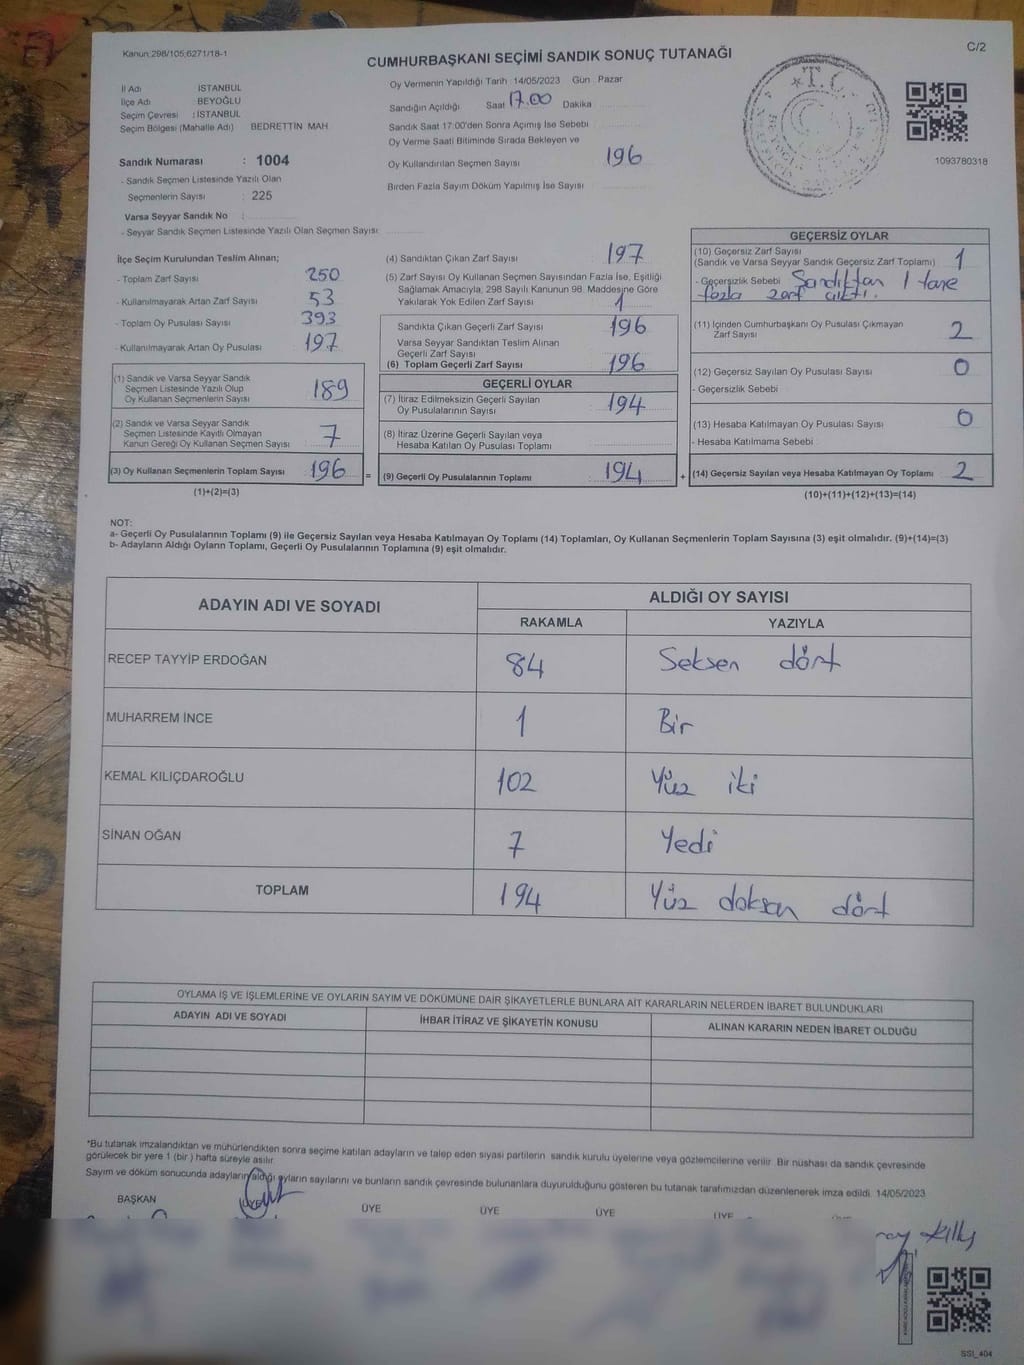 Kanun:298/105,6271/18-1
C/2
CUMHURBAŞKANI SEÇİMİ SANDIK SONUÇ TUTANAĞI
İl Adı İSTANBUL
İlçe Adı BEYOĞLU
Seçim Çevresi : İSTANBUL
Seçim Bölgesi (Mahalle Adı) BEDRETTİN MAH
Sandık Numarası : 1004
- Sandık Seçmen Listesinde Yazılı Olan
Seçmenlerin Sayısı : 225
Varsa Seyyar Sandık No :
- Seyyar Sandık Seçmen Listesinde Yazılı Olan Seçmen Sayısı
Oy Vermenin Yapıldığı Tarih 14/05/2023 Gün Pazar
Sandığın Açıldığı Saat 17.00 Dakika
Sandık Saat 17:00'den Sonra Açımış İse Sebebi
Oy Verme Saati Bitiminde Sırada Bekleyen ve
Oy Kullandırılan Seçmen Sayısı 196
Birden Fazla Sayım Döküm Yapılmış İse Sayısı
T.C.
1093780318
İlçe Seçim Kurulundan Teslim Alınan;
- Toplam Zarf Sayısı 250
- Kullanılmayarak Artan Zarf Sayısı 53
- Toplam Oy Pusulası Sayısı 393
- Kullanılmayarak Artan Oy Pusulası 197
(1) Sandık ve Varsa Seyyar Sandık
Seçmen Listesinde Yazılı Olup
Oy Kullanan Seçmenlerin Sayısı 189
(2) Sandık ve Varsa Seyyar Sandık
Seçmen Listesinde Kayıtlı Olmayan
Kanun Gereği Oy Kullanan Seçmen Sayısı 7
(3) Oy Kullanan Seçmenlerin Toplam Sayısı 196 =
(1)+(2)=(3)
(4) Sandıktan Çıkan Zarf Sayısı 197
(5) Zarf Sayısı Oy Kullanan Seçmen Sayısından Fazla İse, Eşitliği
Sağlamak Amacıyla, 298 Sayılı Kanunun 98. Maddesine Göre
Yakılarak Yok Edilen Zarf Sayısı 1
Sandıkta Çıkan Geçerli Zarf Sayısı 196
Varsa Seyyar Sandıktan Teslim Alınan
Geçerli Zarf Sayısı
(6) Toplam Geçerli Zarf Sayısı 196
GEÇERLİ OYLAR
(7) İtiraz Edilmeksizin Geçerli Sayılan
Oy Pusulalarının Sayısı 194
(8) İtiraz Üzerine Geçerli Sayılan veya
Hesaba Katılan Oy Pusulası Toplamı
(9) Geçerli Oy Pusulalarının Toplamı 194 +
GEÇERSİZ OYLAR
(10) Geçersiz Zarf Sayısı
(Sandık ve Varsa Seyyar Sandık Geçersiz Zarf Toplamı) 1
- Geçersizlik Sebebi Sandıktan 1 tane
fazla zarf çıktı.
(11) İçinden Cumhurbaşkanı Oy Pusulası Çıkmayan
Zarf Sayısı 2
(12) Geçersiz Sayılan Oy Pusulası Sayısı 0
- Geçersizlik Sebebi
(13) Hesaba Katılmayan Oy Pusulası Sayısı 0
- Hesaba Katılmama Sebebi
(14) Geçersiz Sayılan veya Hesaba Katılmayan Oy Toplamı 2
(10)+(11)+(12)+(13)=(14)
NOT:
a- Geçerli Oy Pusulalarının Toplamı (9) ile Geçersiz Sayılan veya Hesaba Katılmayan Oy Toplamı (14) Toplamları, Oy Kullanan Seçmenlerin Toplam Sayısına (3) eşit olmalıdır. (9)+(14)=(3)
b- Adayların Aldığı Oyların Toplamı, Geçerli Oy Pusulalarının Toplamına (9) eşit olmalıdır.
ADAYIN ADI VE SOYADI ALDIĞI OY SAYISI
RAKAMLA YAZIYLA
RECEP TAYYİP ERDOĞAN 84 Seksen dört
MUHARREM İNCE 1 Bir
KEMAL KILIÇDAROĞLU 102 Yüz iki
SİNAN OĞAN 7 Yedi
TOPLAM 194 Yüz doksan dört
OYLAMA İŞ VE İŞLEMLERİNE VE OYLARIN SAYIM VE DÖKÜMÜNE DAİR ŞİKAYETLERLE BUNLARA AİT KARARLARIN NELERDEN İBARET BULUNDUKLARI
ADAYIN ADI VE SOYADI İHBAR İTİRAZ VE ŞİKAYETİN KONUSU ALINAN KARARIN NEDEN İBARET OLDUĞU
*Bu tutanak imzalandıktan ve mühürlendikten sonra seçime katılan adayların ve talep eden siyasi partilerin sandık kurulu üyelerine veya gözlemcilerine verilir. Bir nüshası da sandık çevresinde
görülecek bir yere 1 (bir ) hafta süreyle asılır.
Sayım ve döküm sonucunda adayların aldığı oyların sayılarını ve bunların sandık çevresinde bulunanlara duyurulduğunu gösteren bu tutanak tarafımızdan düzenlenerek imza edildi. 14/05/2023
BAŞKAN ÜYE ÜYE ÜYE ÜYE ÜYE
SSI_404